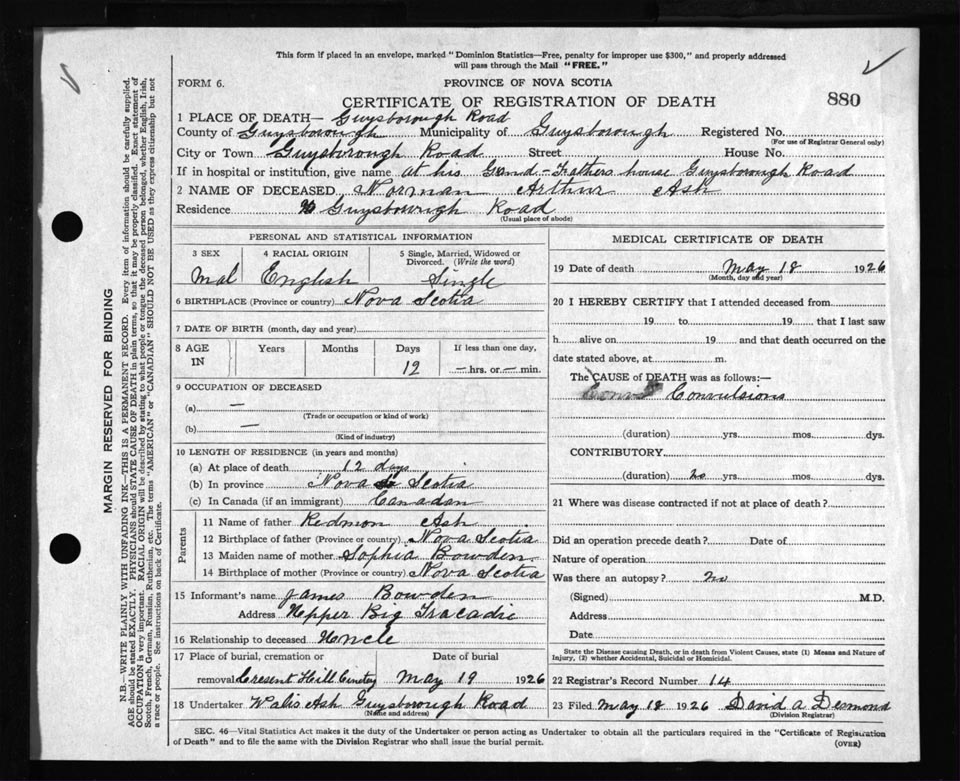 This form if placed in an envelope, marked "Dominion Statistics—Free, penalty for improper use $300," and properly addressed
will pass through the Mail "FREE."
FORM 6.
PROVINCE OF NOVA SCOTIA
CERTIFICATE OF REGISTRATION OF DEATH
880
1 PLACE OF DEATH— Guysborough Road
County of Guysborough Municipality of Guysborough Registered No.
(For use of Registrar General only)
City or Town Guysborough Road Street House No.
If in hospital or institution, give name at his Grnd-Fathers house Guysborough Road
2 NAME OF DECEASED Norman Arthur Ash
Residence Guysborough Road
(Usual place of abode)
PERSONAL AND STATISTICAL INFORMATION
3 SEX
4 RACIAL ORIGIN
5 Single, Married, Widowed or Divorced. (Write the word)
Mal English Single
6 BIRTHPLACE (Province or country) Nova Scotia
7 DATE OF BIRTH (month, day and year)
8 AGE IN
Years
Months
Days
12
If less than one day,
— hrs. or — min.
9 OCCUPATION OF DECEASED
(a) —
(Trade or occupation or kind of work)
(b) —
(Kind of industry)
10 LENGTH OF RESIDENCE (in years and months)
(a) At place of death 12 days
(b) In province Nova Scotia
(c) In Canada (if an immigrant) Canadan
Parents
11 Name of father Redmon Ash
12 Birthplace of father (Province or country) Nova Scotia
13 Maiden name of mother Sophia Bowden
14 Birthplace of mother (Province or country) Nova Scotia
15 Informant's name James Bowden
Address Upper Big Tracadie
16 Relationship to deceased Uncle
17 Place of burial, cremation or
removal Cresent Hill Cimetry
Date of burial
May 19 1926
18 Undertaker Walis Ash Guysborough Road
(Name and address)
MEDICAL CERTIFICATE OF DEATH
19 Date of death May 18 1926
(Month, day and year)
20 I HEREBY CERTIFY that I attended deceased from
19 to 19 that I last saw
h alive on 19 and that death occurred on the
date stated above, at m.
The CAUSE of DEATH was as follows:—
Convulsions
(duration) yrs. mos. dys.
CONTRIBUTORY
(duration) no yrs. mos. dys.
21 Where was disease contracted if not at place of death?
Did an operation precede death? Date of
Nature of operation
Was there an autopsy? no
(Signed) M.D.
Address
Date
State the Disease causing Death, or in death from Violent Causes, state (1) Means and Nature of
Injury, (2) whether Accidental, Suicidal or Homicidal.
22 Registrar's Record Number 14
23 Filed May 18 1926 David A Desmond
(Division Registrar)
SEC. 46—Vital Statistics Act makes it the duty of the Undertaker or person acting as Undertaker to obtain all the particulars required in the "Certificate of Registration
of Death" and to file the same with the Division Registrar who shall issue the burial permit.
(OVER)
MARGIN RESERVED FOR BINDING
N.B.—WRITE PLAINLY WITH UNFADING INK—THIS IS A PERMANENT RECORD. Every item of information should be carefully supplied.
AGE should be stated EXACTLY. PHYSICIANS should STATE CAUSE OF DEATH in plain terms, so that it may be properly classified. Exact statement of
OCCUPATION is very important. RACIAL ORIGIN will be described by stating to what people or tongue the deceased person belonged, whether English, Irish,
Scotch, French, German, Russian, Ruthenian, etc. The terms "AMERICAN" or "CANADIAN" SHOULD NOT BE USED as they express citizenship but not
a race or people. See instructions on back of Certificate.